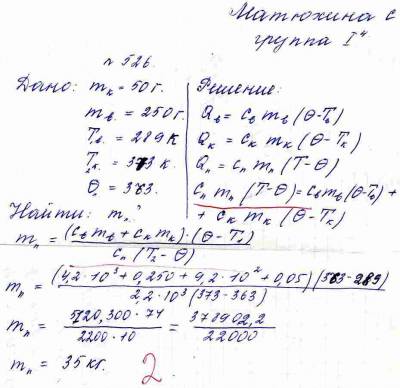 Матюхина С
группа I"
№ 526.
Дано: mк = 50 г.
mв. = 250 г.
Tв. = 289 К
Tк. = 373 к.
Θ = 363.
Найти: mп?
Решение:
Qв = cв mв (Θ-Tв)
Qк = cк mк (Θ-Tк)
Qп = cп mп (T-Θ)
cп mп (T-Θ) = cв mв (Θ-Tв) +
+ cк mк (Θ-Tк)
mп = (cв mв + cк mк)·(Θ-T) / cп (Tп-Θ)
mп = (4,2·10³ + 0,250 + 9,2·10² + 0,05)(363-289) / 2,2·10³ (373-363)
mп = 5120,300·74 / 2200·10 = 378902,2 / 22000
mп = 35 кг.
2